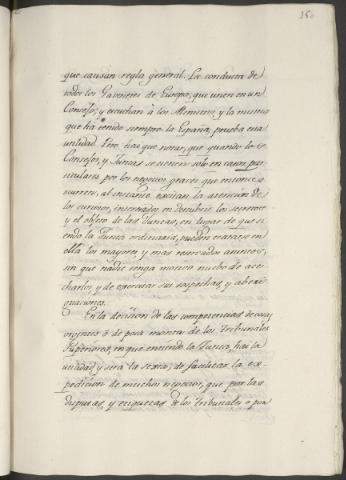 150
que causan regla general. La conducta de
todos los Gavinetes de Europa, que unen en un
Consejo, y escuchan à los Ministros, y la misma
que ha tenido siempre la España, prueba esta
utilidad. Pero hay que notar, que quando los
Consejos, y Juntas se unen solo en casos par
ticulares por los negocios graves que entonces o
curren, al instante excitan la atencion de
los curiosos, interesados en descubrir los secretos
y el objeto de las Juntas, en lugar de que si
endo la Junta ordinaria, pueden tratarse en
ella los mayores y mas reservados asuntos,
sin que nadie tenga motivo nuebo de ace
charlos, y de executar sus sospechas, y aberi
guaciones.
En la decision de las competencias
urgentes ò de poca monta de los Tribunales
Superiores, en que entiende la Junta, hay la
utilidad, y será la sexta, de facilitar la ex
pedicion de muchos negocios, que por las
disputas, y etiquetas de los Tribunales o pa